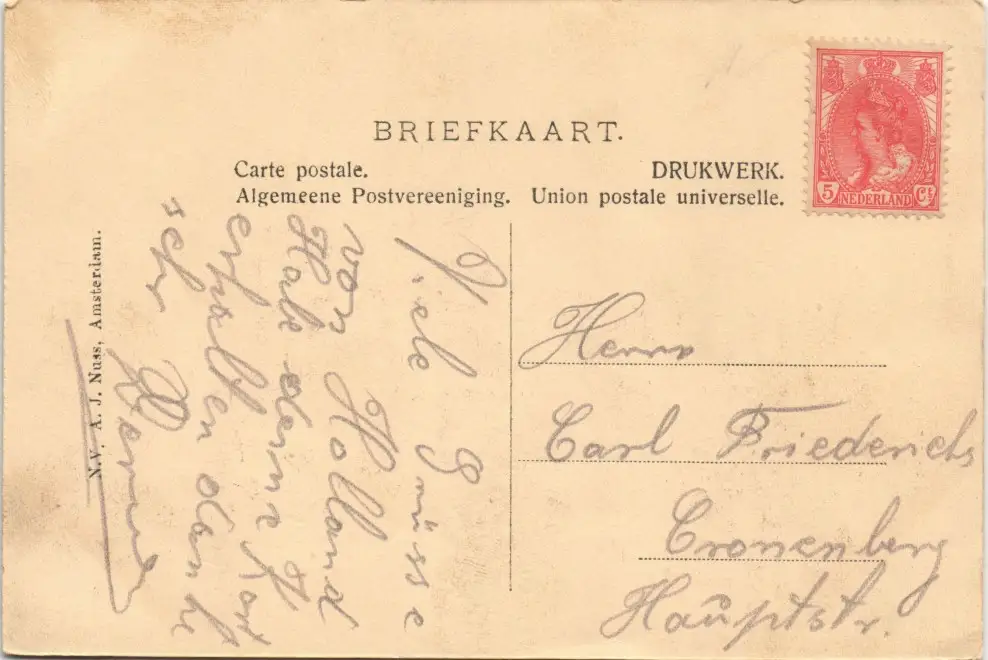 BRIEFKAART.
Carte postale.
DRUKWERK.
Algemeene Postvereeniging. Union postale universelle.
5 NEDERLAND Ct
N.V. A. J. Nuss, Amsterdam.
Viele Grüsse
von Holland
Habe deine Kart
erhalten danke
sehr
Herrn
Carl Friederichs
Cronenberg
Hauptstr.